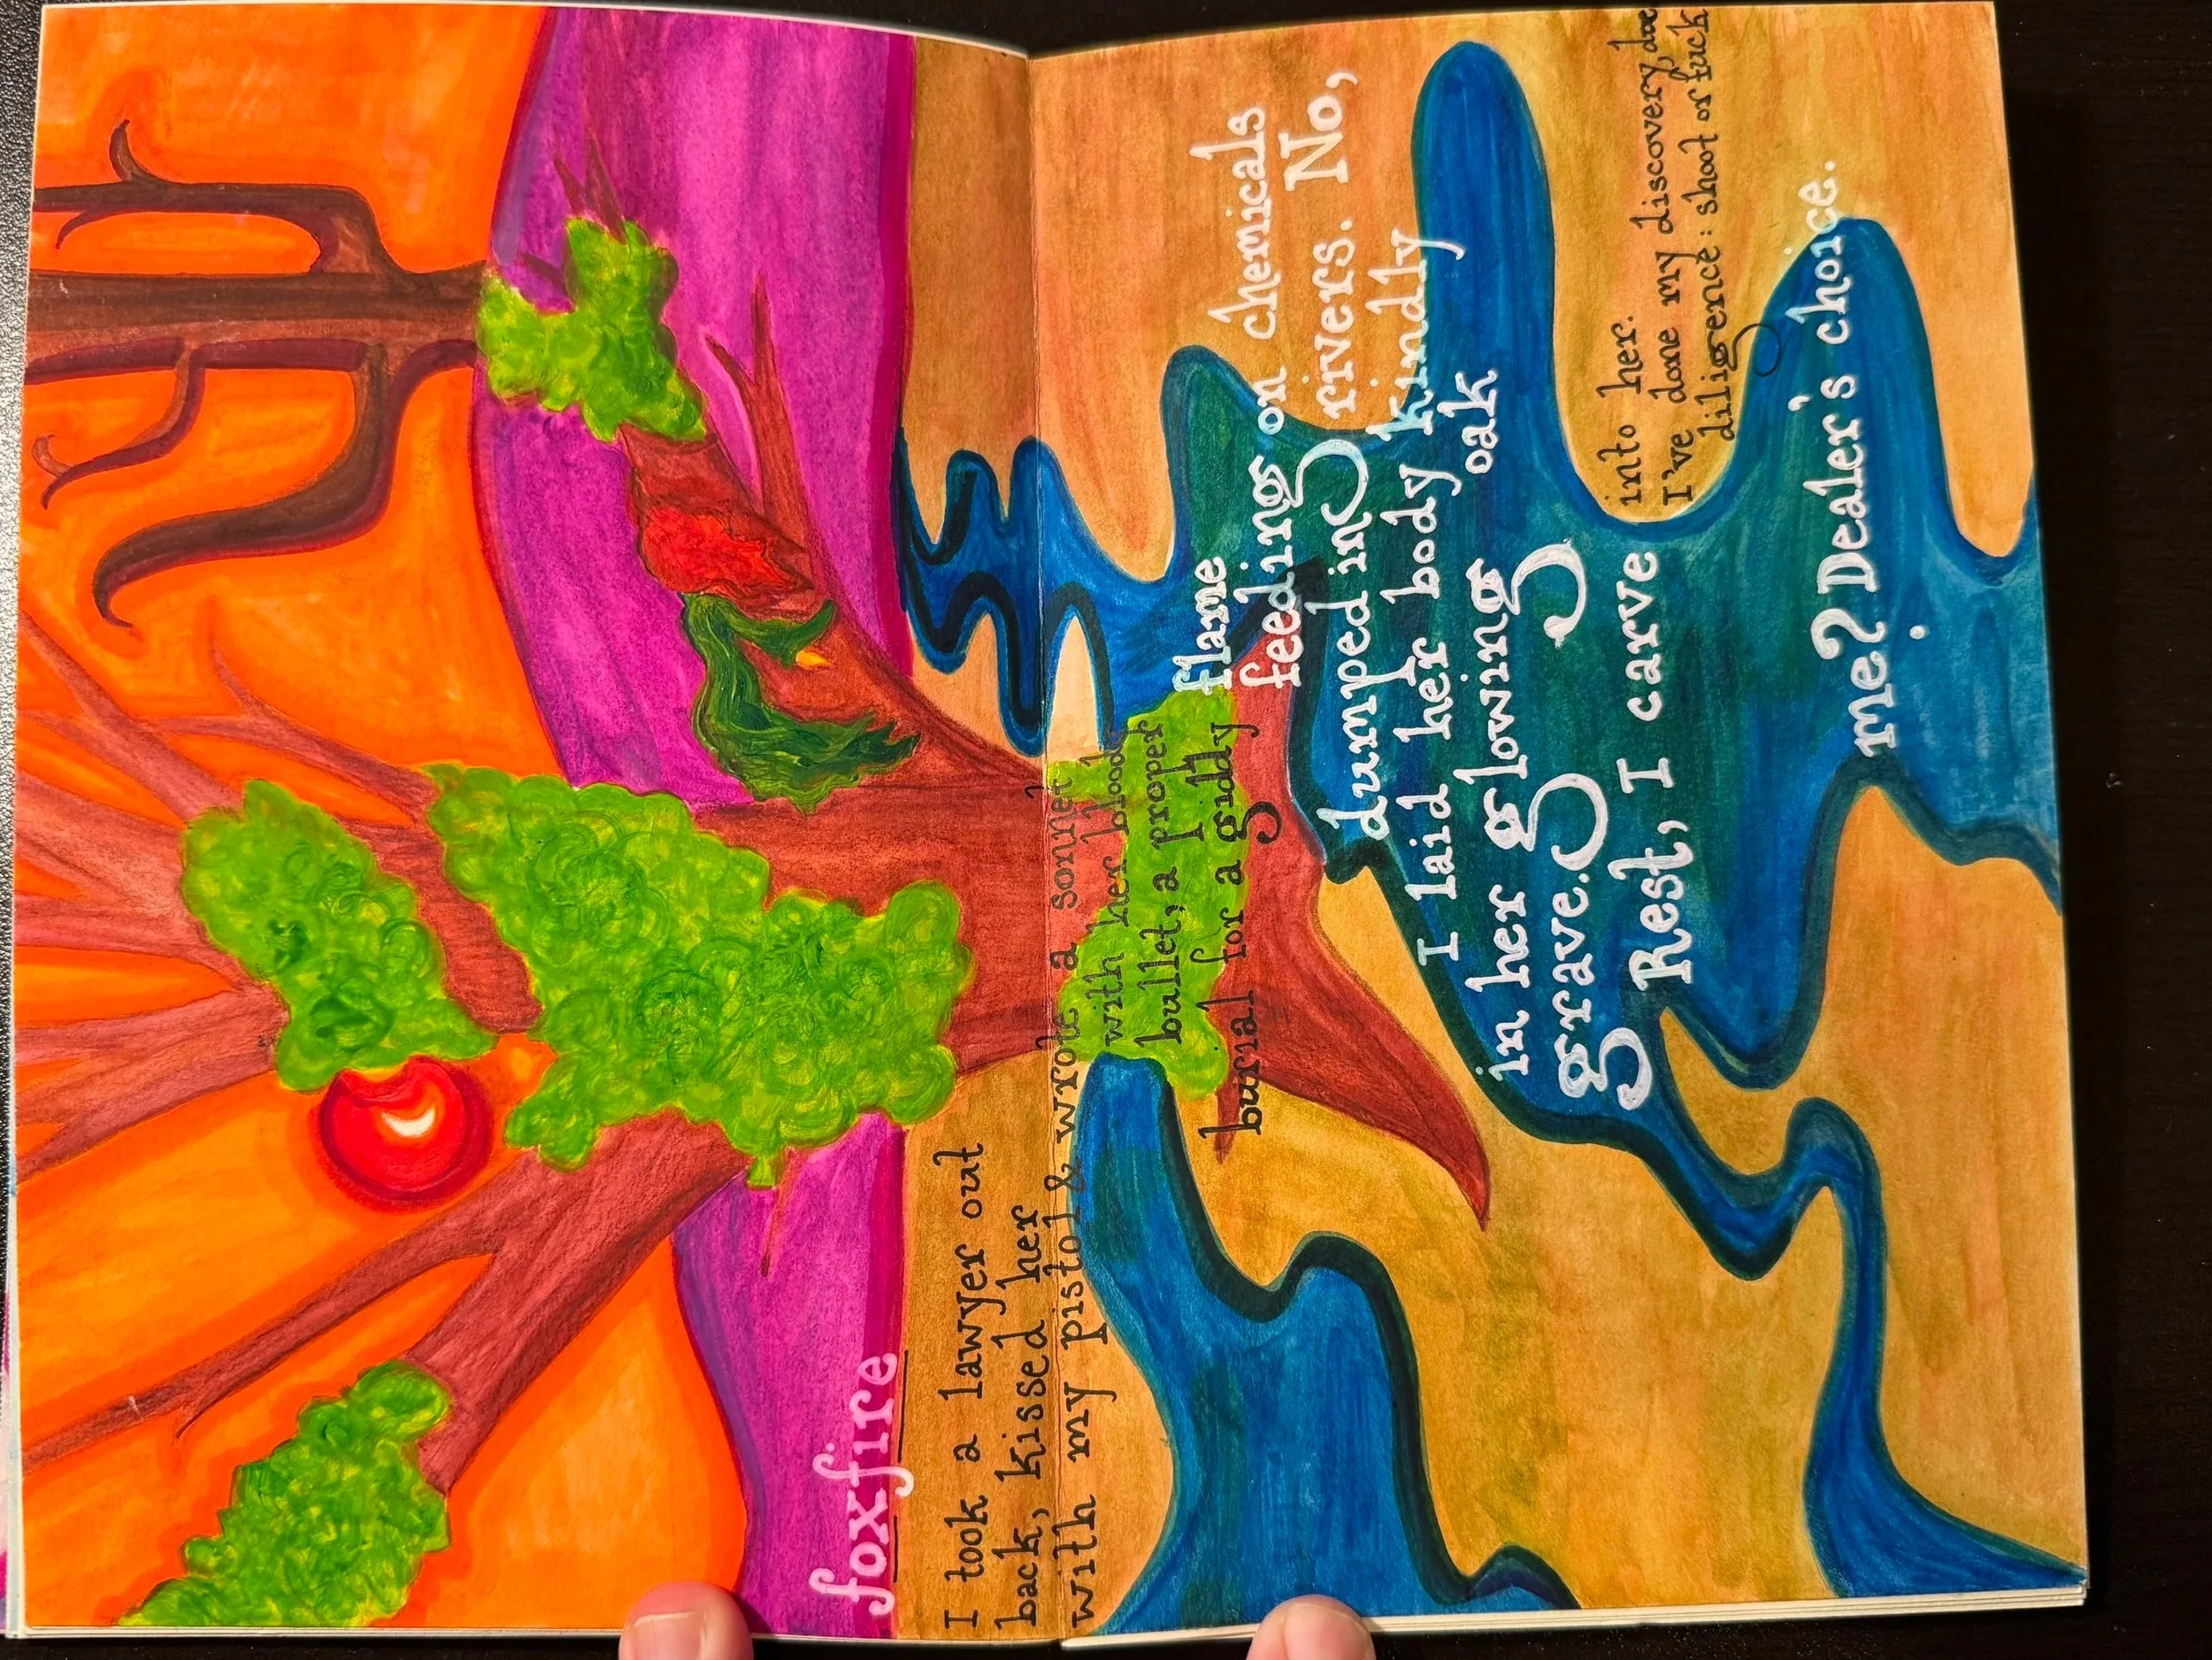 foxfire
I took a lawyer out
back, kissed her
with my pistol & wrote a sonnet
with her blood
bullet, a proper
burial for a giddy
flame
feeding on chemicals
dumped in rivers. No,
I laid her body kindly
in her glowing oak
grave.
Rest, I carve
into her.
I've done my discovery, doc
diligence: shoot or fuck
me? Dealer's choice.